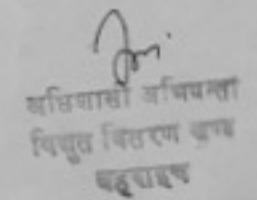 अधिशासी अभियन्ता
विद्युत वितरण खण्ड
बहराइच